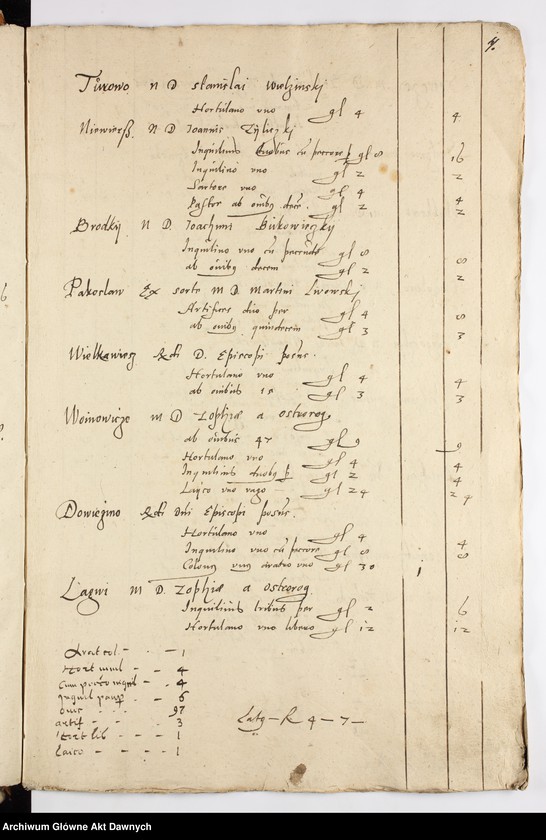 4.
Turowo N D Stanislai Wulzinskj
Hortulano vno gl 4 4
Niewiersz. N D Joannis Zyliczkj
Inquilinis duobus cu pecore p gl 8 16
Inquilino vno gl 2 2
Sartore vno gl 4 4
Pastor ab ouiby dece. gl 2 2
Brodky N D. Joachimi Bukowieczky
Inquilino vno cu pecude gl 8 8
ab ouiby decem gl 2 2
Pakoslaw Ex sorte M D Martini Lwowskj
Artifices duo per gl 4 8
ab ouiby quindecim gl 3 3
Wielkawiesz Rdi D. Episcopi posn.
Hortulano vno gl 4 4
ab ouibus 15 gl 3 3
Woinowicze M D Zophiæ a Ostrorog
ab ouibus 47 gl 9 9
Hortulano vno gl 4 4
Inquilinis duoby p gl 2 4
Laico vno vago gl 24 24
Dowiezino Rdi Dni Episcopi posn.
Hortulano vno gl 4 4
Inquilino vno cu pecore gl 8 8
Colony vny aratro vno gl 30 1
Lagwi M D. Zophiæ a Ostrorog
Inquilinis tribus per gl 2 6
Hortulano vno libero gl 12 12
- - 1
- 4
- - 4
- - 6
oues 97
artif - - 3
Hort lib - - - 1
Laico - - - - 1
Latg - R 4 - 7 -
Archiwum Główne Akt Dawnych